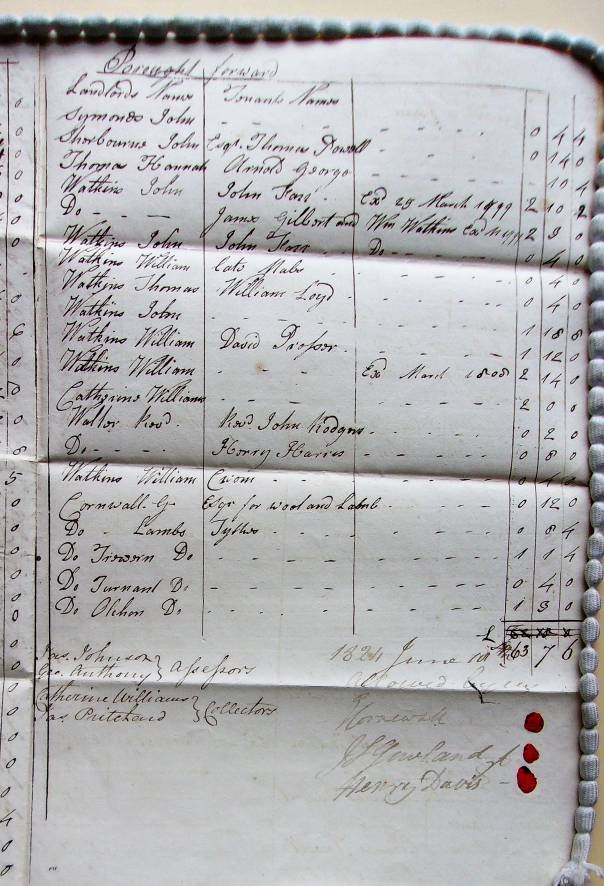 Brought forward
Landlords Names Tenants Names
Symonds John - - - - - - 0 4 4
Shorbourne John Esqr. Thomas Powell 0 14 0
Thomas Hannah Arnold George - - - 10 4
Watkins John John Farr. Exd 25 March 1799 2 10 2
Do - - - James Gilbert and Wm Watkins Exd 2 9 0
Watkins John John Farr - Do - - - 0 4 0
Watkins William Cots - - - 0 4 0
Watkins Thomas William Loyd - - - 0 4 0
Watkins John - - - - - - 1 18 8
Watkins William David Prosser - - - 1 12 0
Watkins William - - - Exd March 1808 2 14 0
Catherine Williams - - - - - 2 0 0
Waller Revd. Revd John Rodgers - - - 0 2 0
Do - - - Henry Harris - - - 0 8 0
Watkins William - - - 0
Cornwall. G Esqr for wool and Lamb - - - 0 12 0
Do - Lambs Tythes - - - 0 8 4
Do Trewern Do - - - 1 1 4
Do Turnant Do - - - 0 4 0
Do Olchon Do - - - 1 3 0
£ 63 7 6
Jas. Johnson
Geo. Anthony } Assessors
Catherine Williams
Jas. Pritchard } Collectors
1824 June 10th
allowed by us
Henry Davis